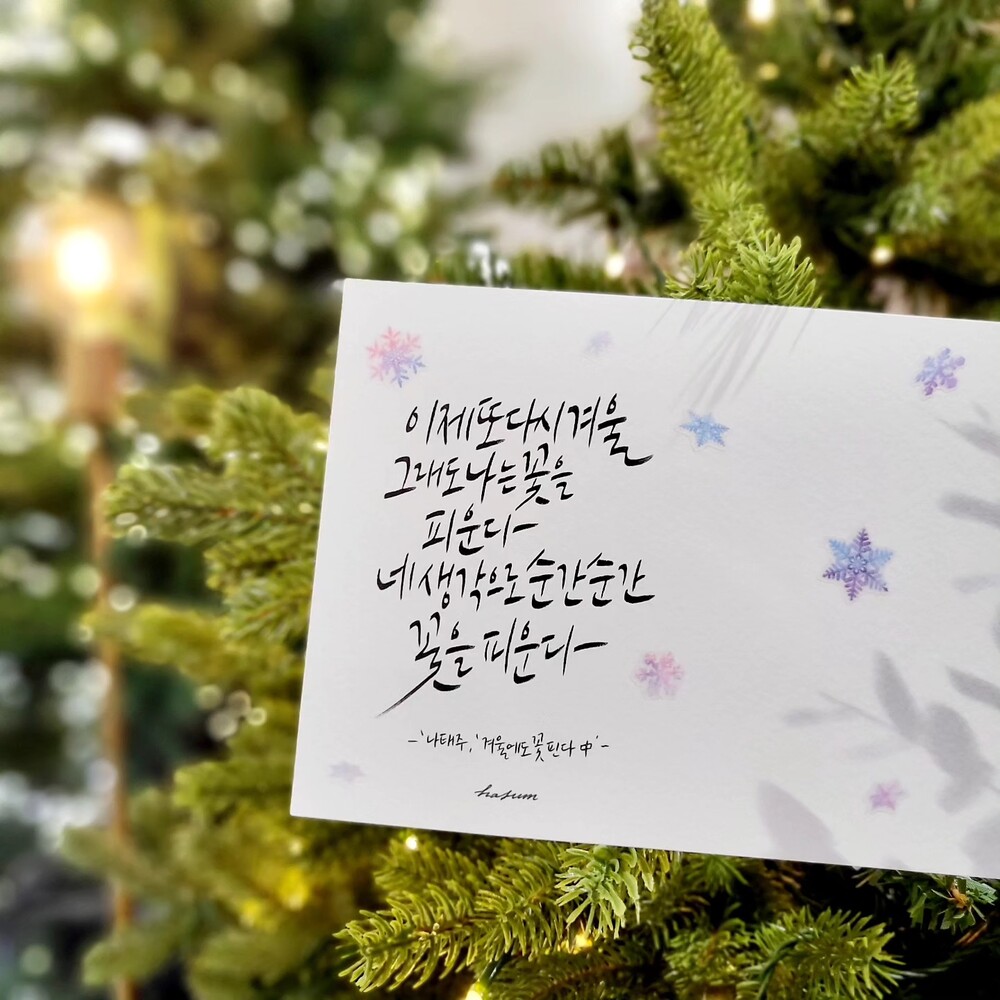 이제 또 다시 겨울
그래도 나는 꽃을
피운다
네 생각으로 순간순간
꽃을 피운다
-'나태주,'겨울에도 꽃 핀다 中'-
hasum